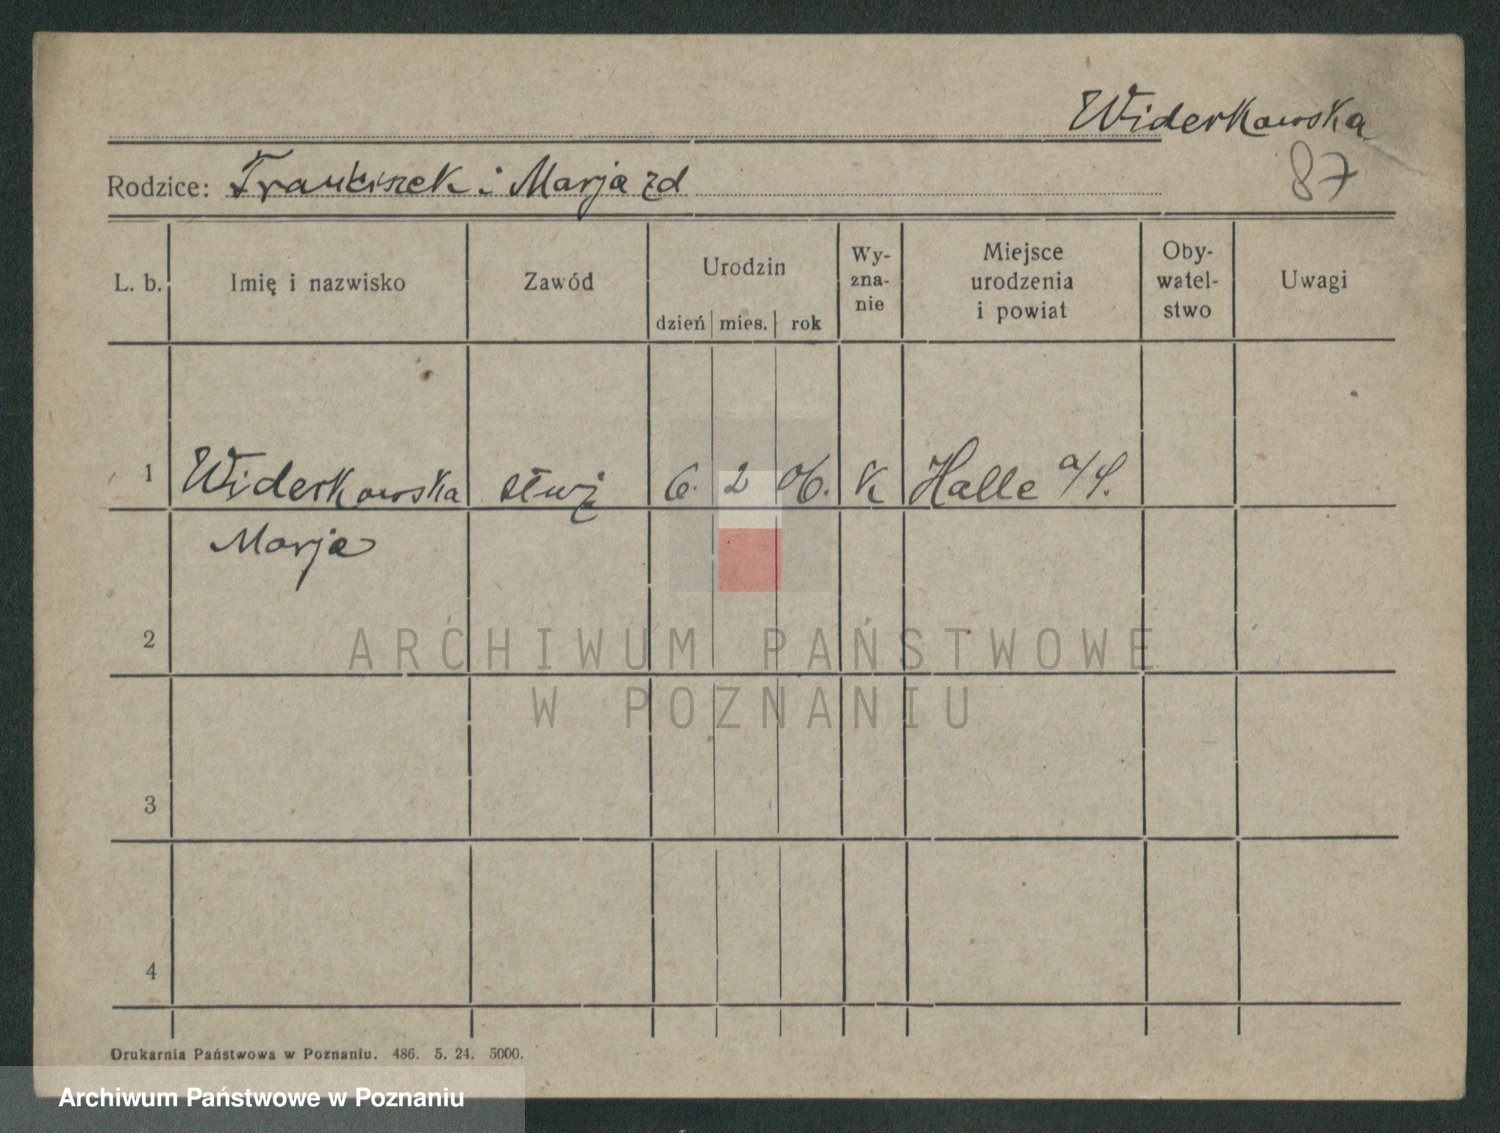 Widerkowska
87
Rodzice: Franciszek i Marja zd
L. b. Imię i nazwisko Zawód Urodzin dzień mies. rok Wy-zna-nie Miejsce urodzenia i powiat Oby-watel-stwo Uwagi
1 Widerkowska służ 6. 2 06. K Halle a/S.
Marja
2
ARCHIWUM PAŃSTWOWE
W POZNANIU
3
4
Drukarnia Państwowa w Poznaniu. 486. 5. 24. 5000.
Archiwum Państwowe w Poznaniu